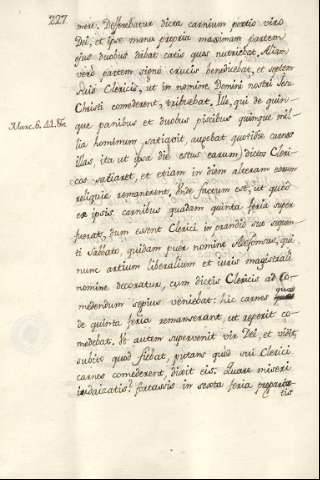 227.
mere. Defferebatur dicta carnium portio viro
Dei, et ipse manu propria maximam partem
ejus duobus dabat canis quas nutriebat. Aliam
verò partem signo crucis benedicebat, et septem
suis Clericis, ut in nomine Domini nostri Jesu
Christi comederent, tribuebat. Ille, qui de quin-
Marc. 6.
que panibus et duobus piscibus quinque mil-
lia hominum satiavit, augebat quotidie carnes
illas, ita ut ipsa die esus earum dictos Cleri-
cos satiaret, et etiam in diem alteram earum
reliquiæ remanerent. Unde factum est, ut quòd
ex ipsis carnibus quadam quinta feria super
fuerat, dum essent Clerici in prandio sequen-
ti Sabbato, quidam puer nomine Adefonsus, qui
nunc artium liberalium et iuris magistrali
nomine decoratur, cum dictis Clericis ad co-
medendum sepius veniebat: hic carnes quæ
de quinta feria remanserant, ut reperit co-
medebat. Et autem supervenit vir Dei, et vidit
subitò quod fiebat, putans quòd sui Clerici
carnes comederent, dixit eis: Quare miseri
iudaizatis? fortassis in sexta feria præpara-
tis